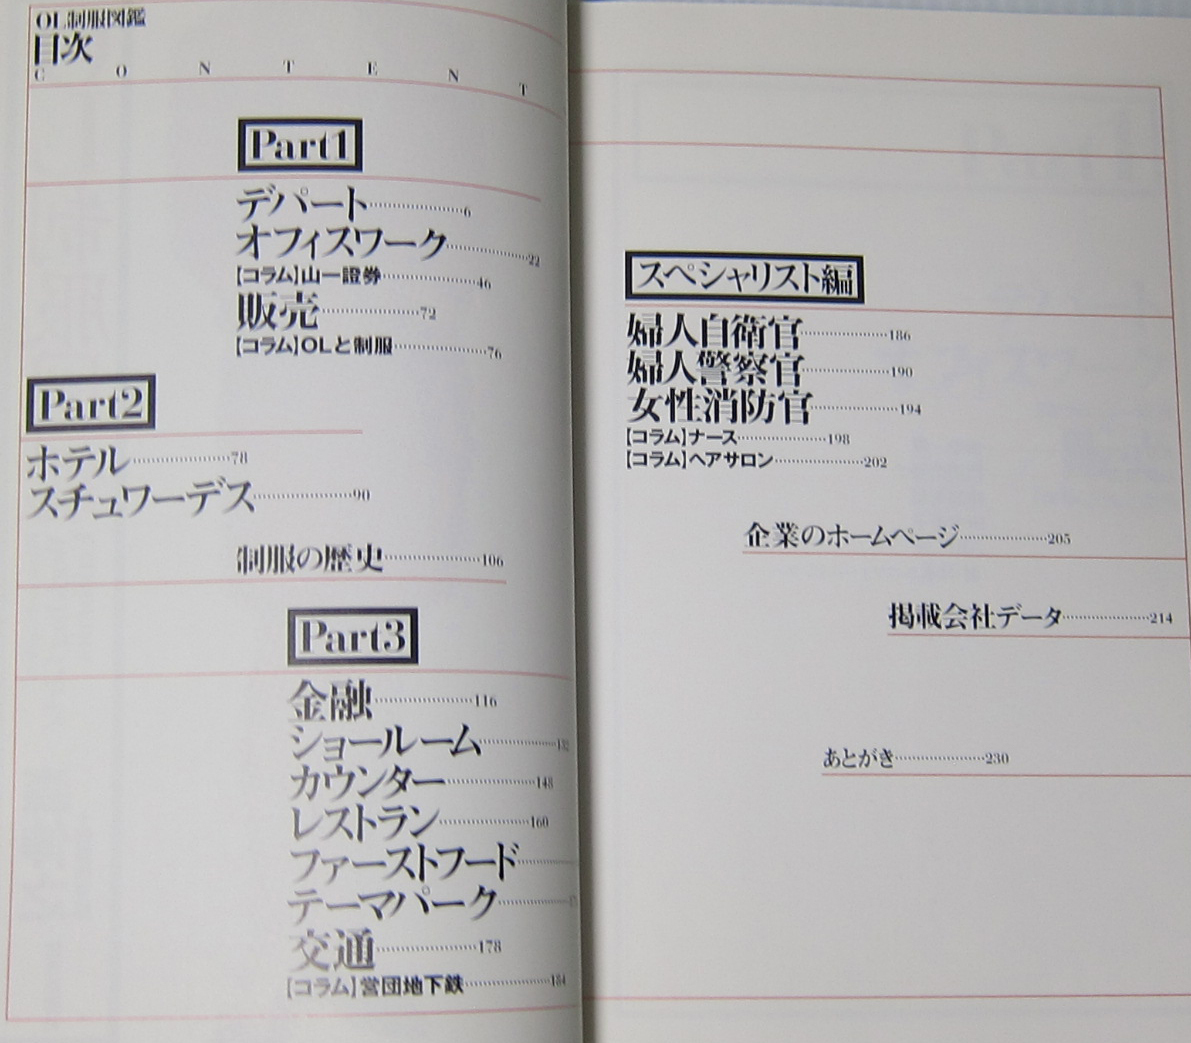 OL制服図鑑
目次
CONTENT
Part1
デパート…………………6
オフィスワーク…………………22
【コラム】山一證券…………………46
販売…………………72
【コラム】OLと制服…………………76
Part2
ホテル…………………78
スチュワーデス…………………90
制服の歴史…………………106
Part3
金融…………………116
ショールーム…………………132
カウンター…………………148
レストラン…………………160
ファーストフード…………………
テーマパーク…………………
交通…………………178
【コラム】営団地下鉄…………………184
スペシャリスト編
婦人自衛官…………………186
婦人警察官…………………190
女性消防官…………………194
【コラム】ナース…………………198
【コラム】ヘアサロン…………………202
企業のホームページ…………………205
掲載会社データ…………………214
あとがき…………………230